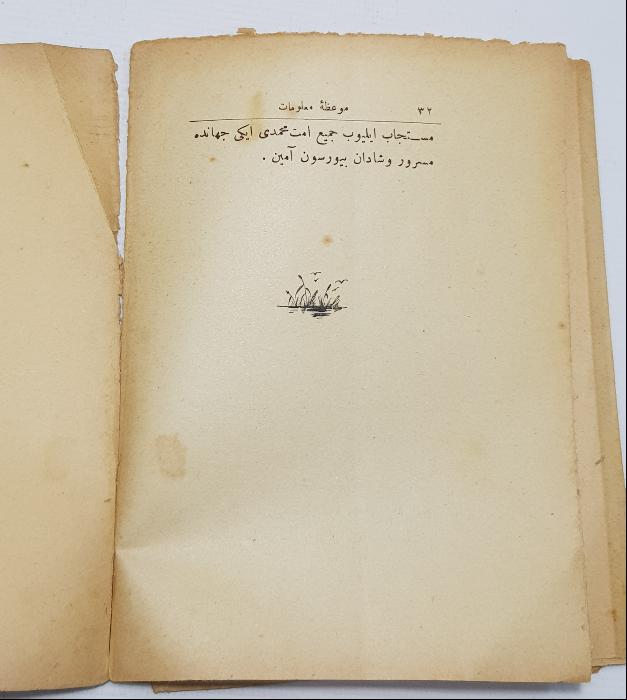 ٣٢ موعظهٔ معلومات
مستجاب ایلیوب جمیع امت محمدی ایکی جهانده
مسرور وشادان بیورسون آمین .